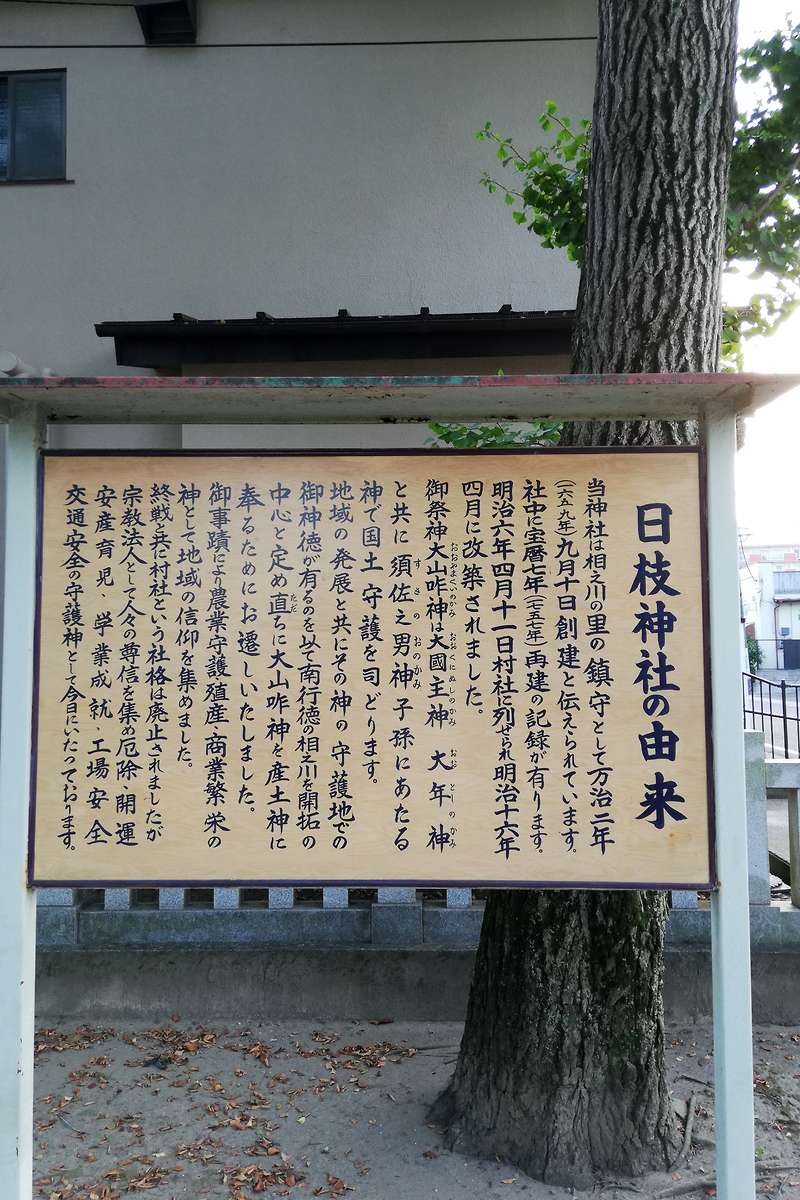 日枝神社の由来
当神社は相之川の里の鎮守として万治二年
（一六五九年）九月十日創建と伝えられています。
社中に宝暦七年（一七五七年）再建の記録が有ります。
明治六年四月十一日村社に列せられ明治十六年
四月に改築されました。
御祭神大山咋神は大國主神 大年神
おおやまくいのかみ おおくにぬしのかみ おおとしのかみ
と共に須佐之男神子孫にあたる
すさのおのかみ
神で国土守護を司どります。
地域の発展と共にその神の守護地での
御神徳が有るのを以て南行徳の相之川を開拓の
中心と定め直ちに大山咋神を産土神に
ただ
奉るためにお遷しいたしました。
御事蹟により農業守護殖産・商業繁栄の
神として地域の信仰を集めました。
終戦と共に村社という社格は廃止されましたが
宗教法人として人々の尊信を集め厄除・開運
安産育児・学業成就・工場安全
交通安全の守護神として今日にいたっております。